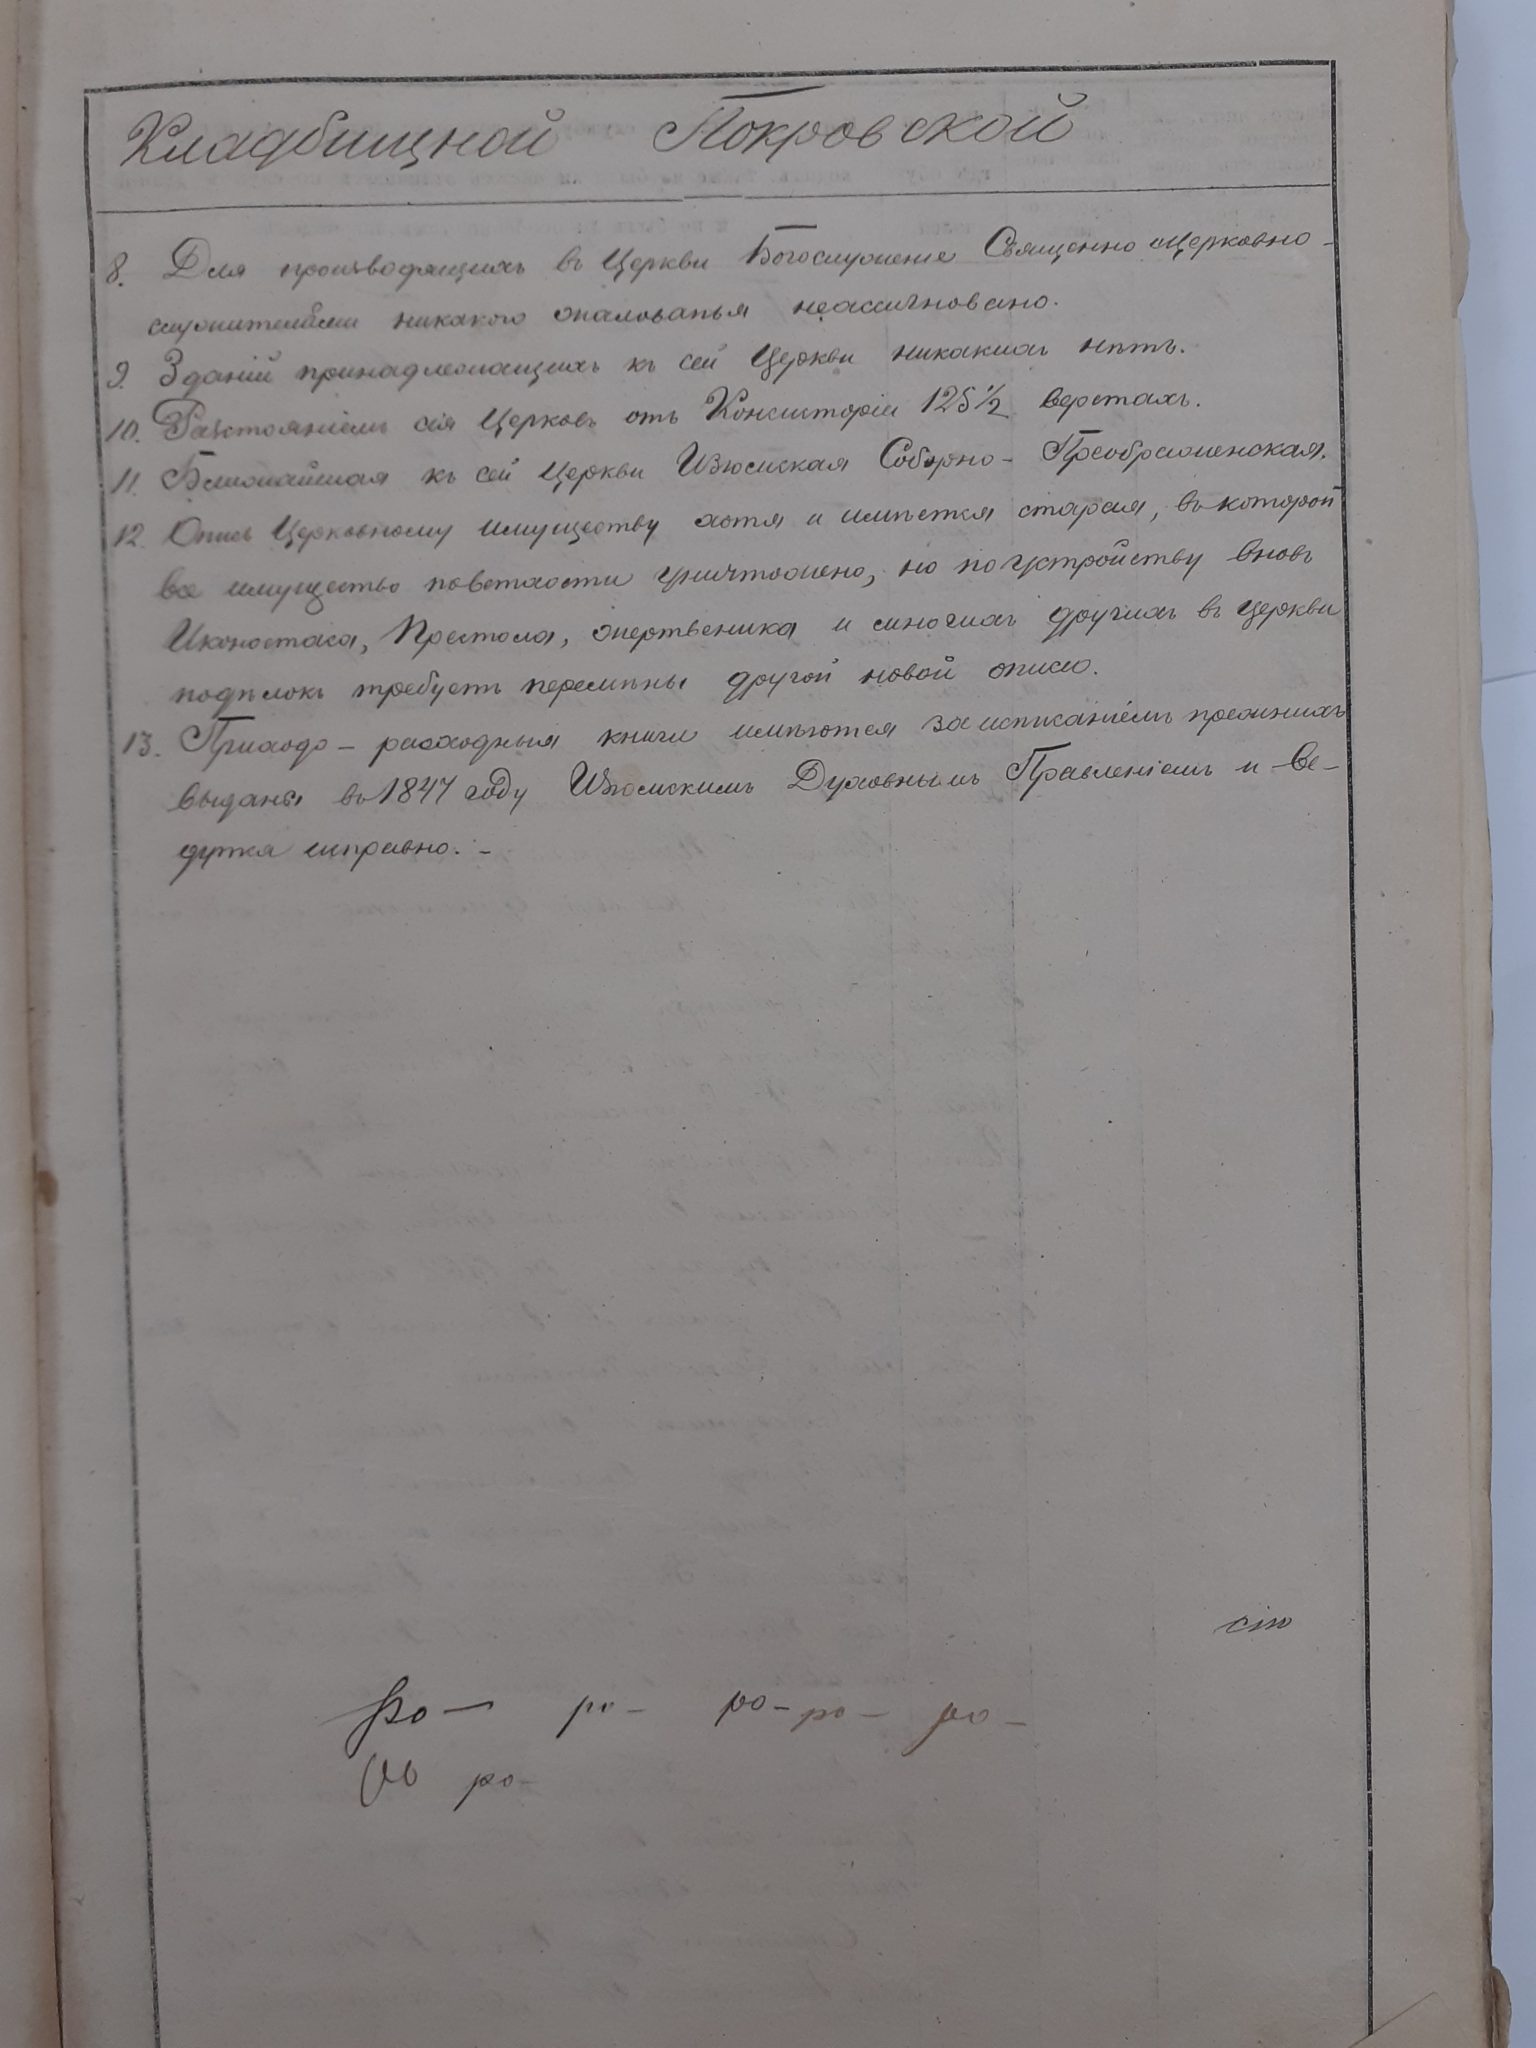 Кладбищной Покровской
8. Для производящихъ въ Церкви Богослуженіе Священно Церковно-
служителями никакого жалованья неассигновано.
9. Зданій принадлежащихъ къ сей Церкви никакихъ нѣтъ.
10. Разстояніемъ сія Церковь отъ Консисторіи 125 1/2 верстахъ.
11. Ближайшая къ сей Церкви Изюмская Соборно-Преображенская.
12. Опись Церковному имуществу хотя и имѣется старая, въ которой
все имущество поветхости уничтожено, но поустройству вновь
Иконостаса, Престола, жертвеника и многихъ другихъ въ церкви
подѣлокъ требуетъ перемѣны другой новой описи.
13. Приходо-расходныя книги имѣются за исписаніемъ прежнихъ
выданы въ 1847 году Изюмскимъ Духовнымъ Правленіемъ и ве-
дутся исправно.-
сію
ро- ро- ро- ро-
ро-